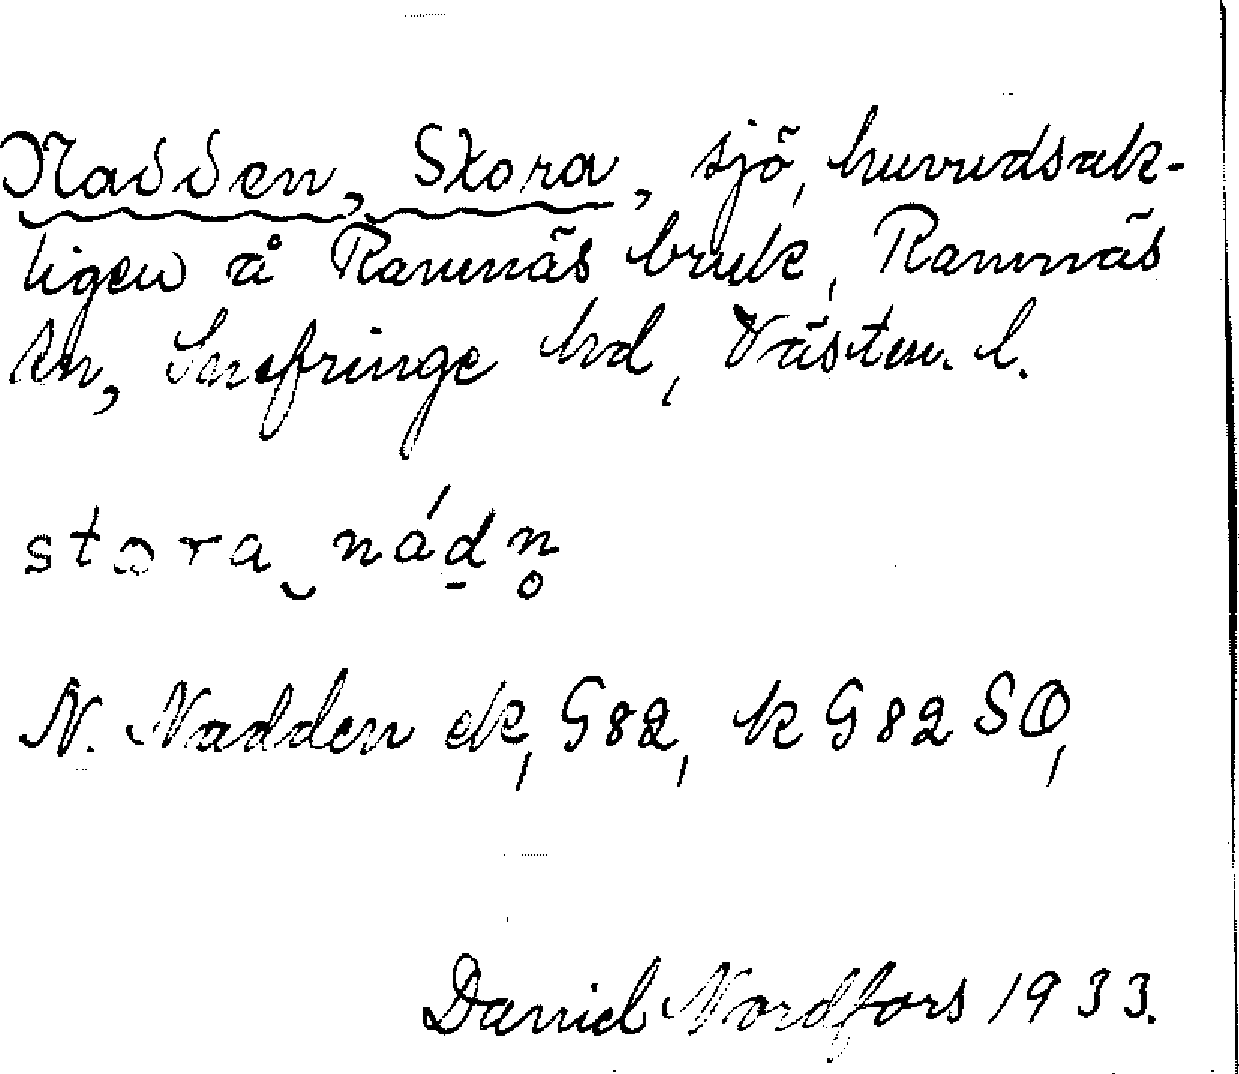 Nadden, Stora, sjö, huvudsak-
ligen å Ramnäs bruk, Ramnäs
sn, Snefringe hd, Västm. l.
stora nádn̥
N. Nadden ek, G82, k G82 SO,
Daniel Nordfors 1933.